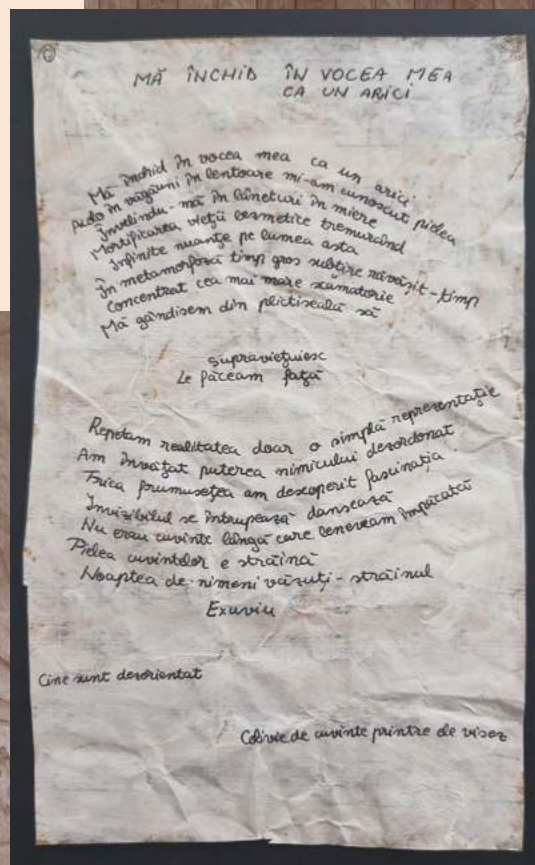 MĂ ÎNCHID ÎN VOCEA MEA
CA UN ARICI
Mă închid în vocea mea ca un arici
Acolo în văgăuni în lentoare mi-am cunoscut pielea
Învelindu-mă în lâneturi în miere
Mortificarea vieții cosmetice tremurând
Infinite nuanțe pe lumea asta
În metamorfoză timp gros subțire răvășit-timp
Concentrat cea mai mare scamatorie
Mă gândisem din plictiseală să
supraviețuiesc
Le făceam față
Repetam realitatea doar o simplă reprezentație
Am învățat puterea nimicului dezordonat
Frica frumusețea am descoperit fascinația
Invizibilul se întrupează dansează
Nu erau cuvinte lângă care leneveam împăcată
Pielea cuvintelor e străină
Noaptea de nimeni văzuți-străinul
Exuviu
Cine sunt dezorientat
Colivie de cuvinte printre ele visez